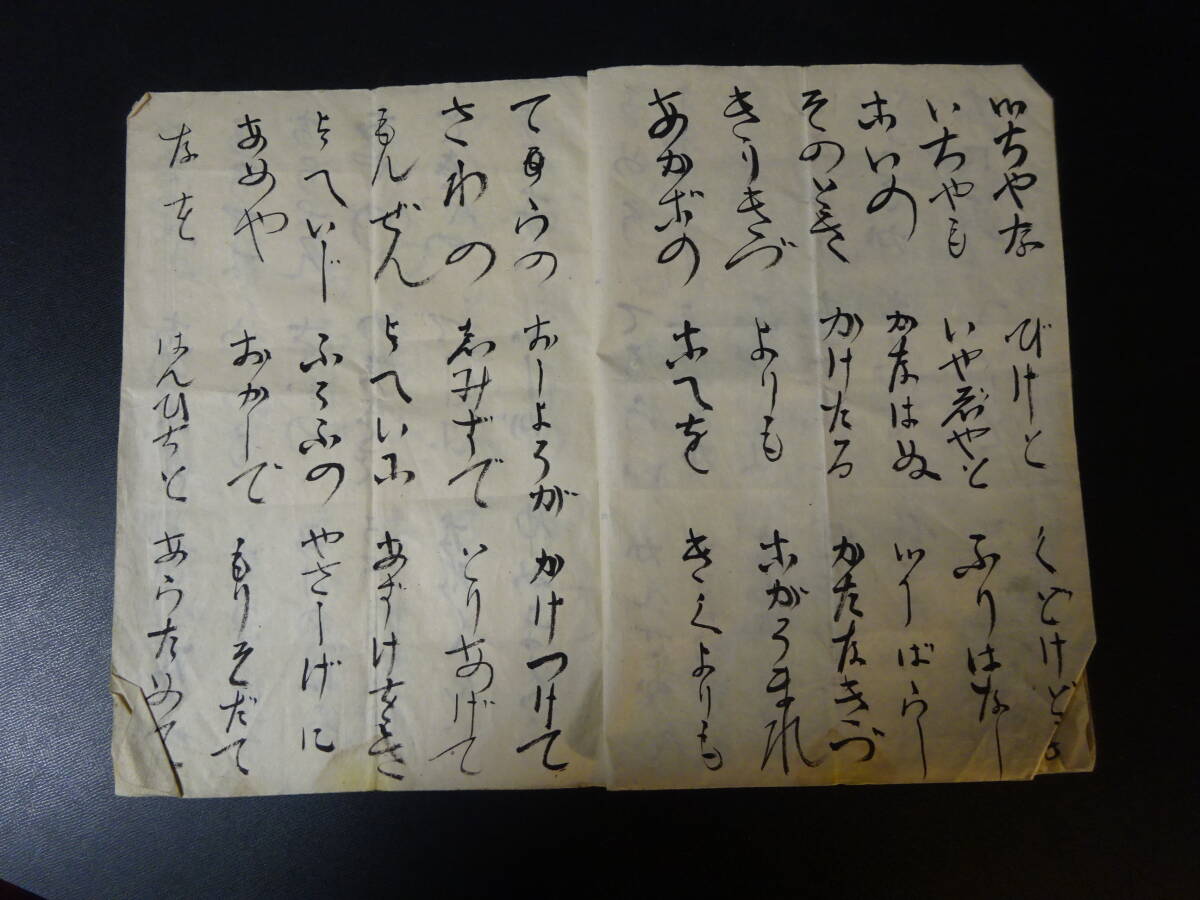 いちやな びけと くどけど
いちやも いやじやと ふりはなし
こいの かなはぬ
そのとき かけたる かたなきづ
きりきづ よりも こがうまれ
あかごの こへを きくよりも
おしようが かけつけて
さわの しみずで とりあげて
もんぜん とへいに あずけをき
とへいじ ふうふの やさしげに
あめや おかしで もりそだて
なを はんひちと あらためて